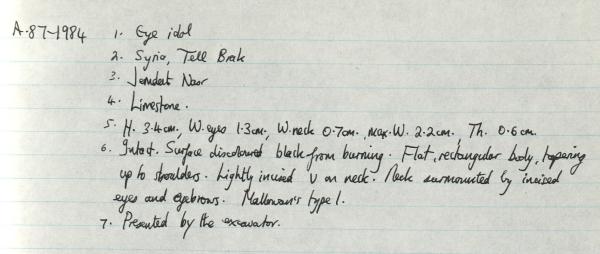 A.87-1984 1. Eye idol
2. Syria, Tell Brak
3. Jemdet Nasr
4. Limestone.
5. H. 3.4cm., W. eyes 1.3cm., W. neck 0.7cm., max. W. 2.2cm. Th. 0.6cm.
6. Intact. Surface discoloured black from burning. Flat, rectangular body, tapering
up to shoulders. Lightly incised V on neck. Neck surmounted by incised
eyes and eyebrows. Mallowan's type 1.
7. Presented by the excavator.